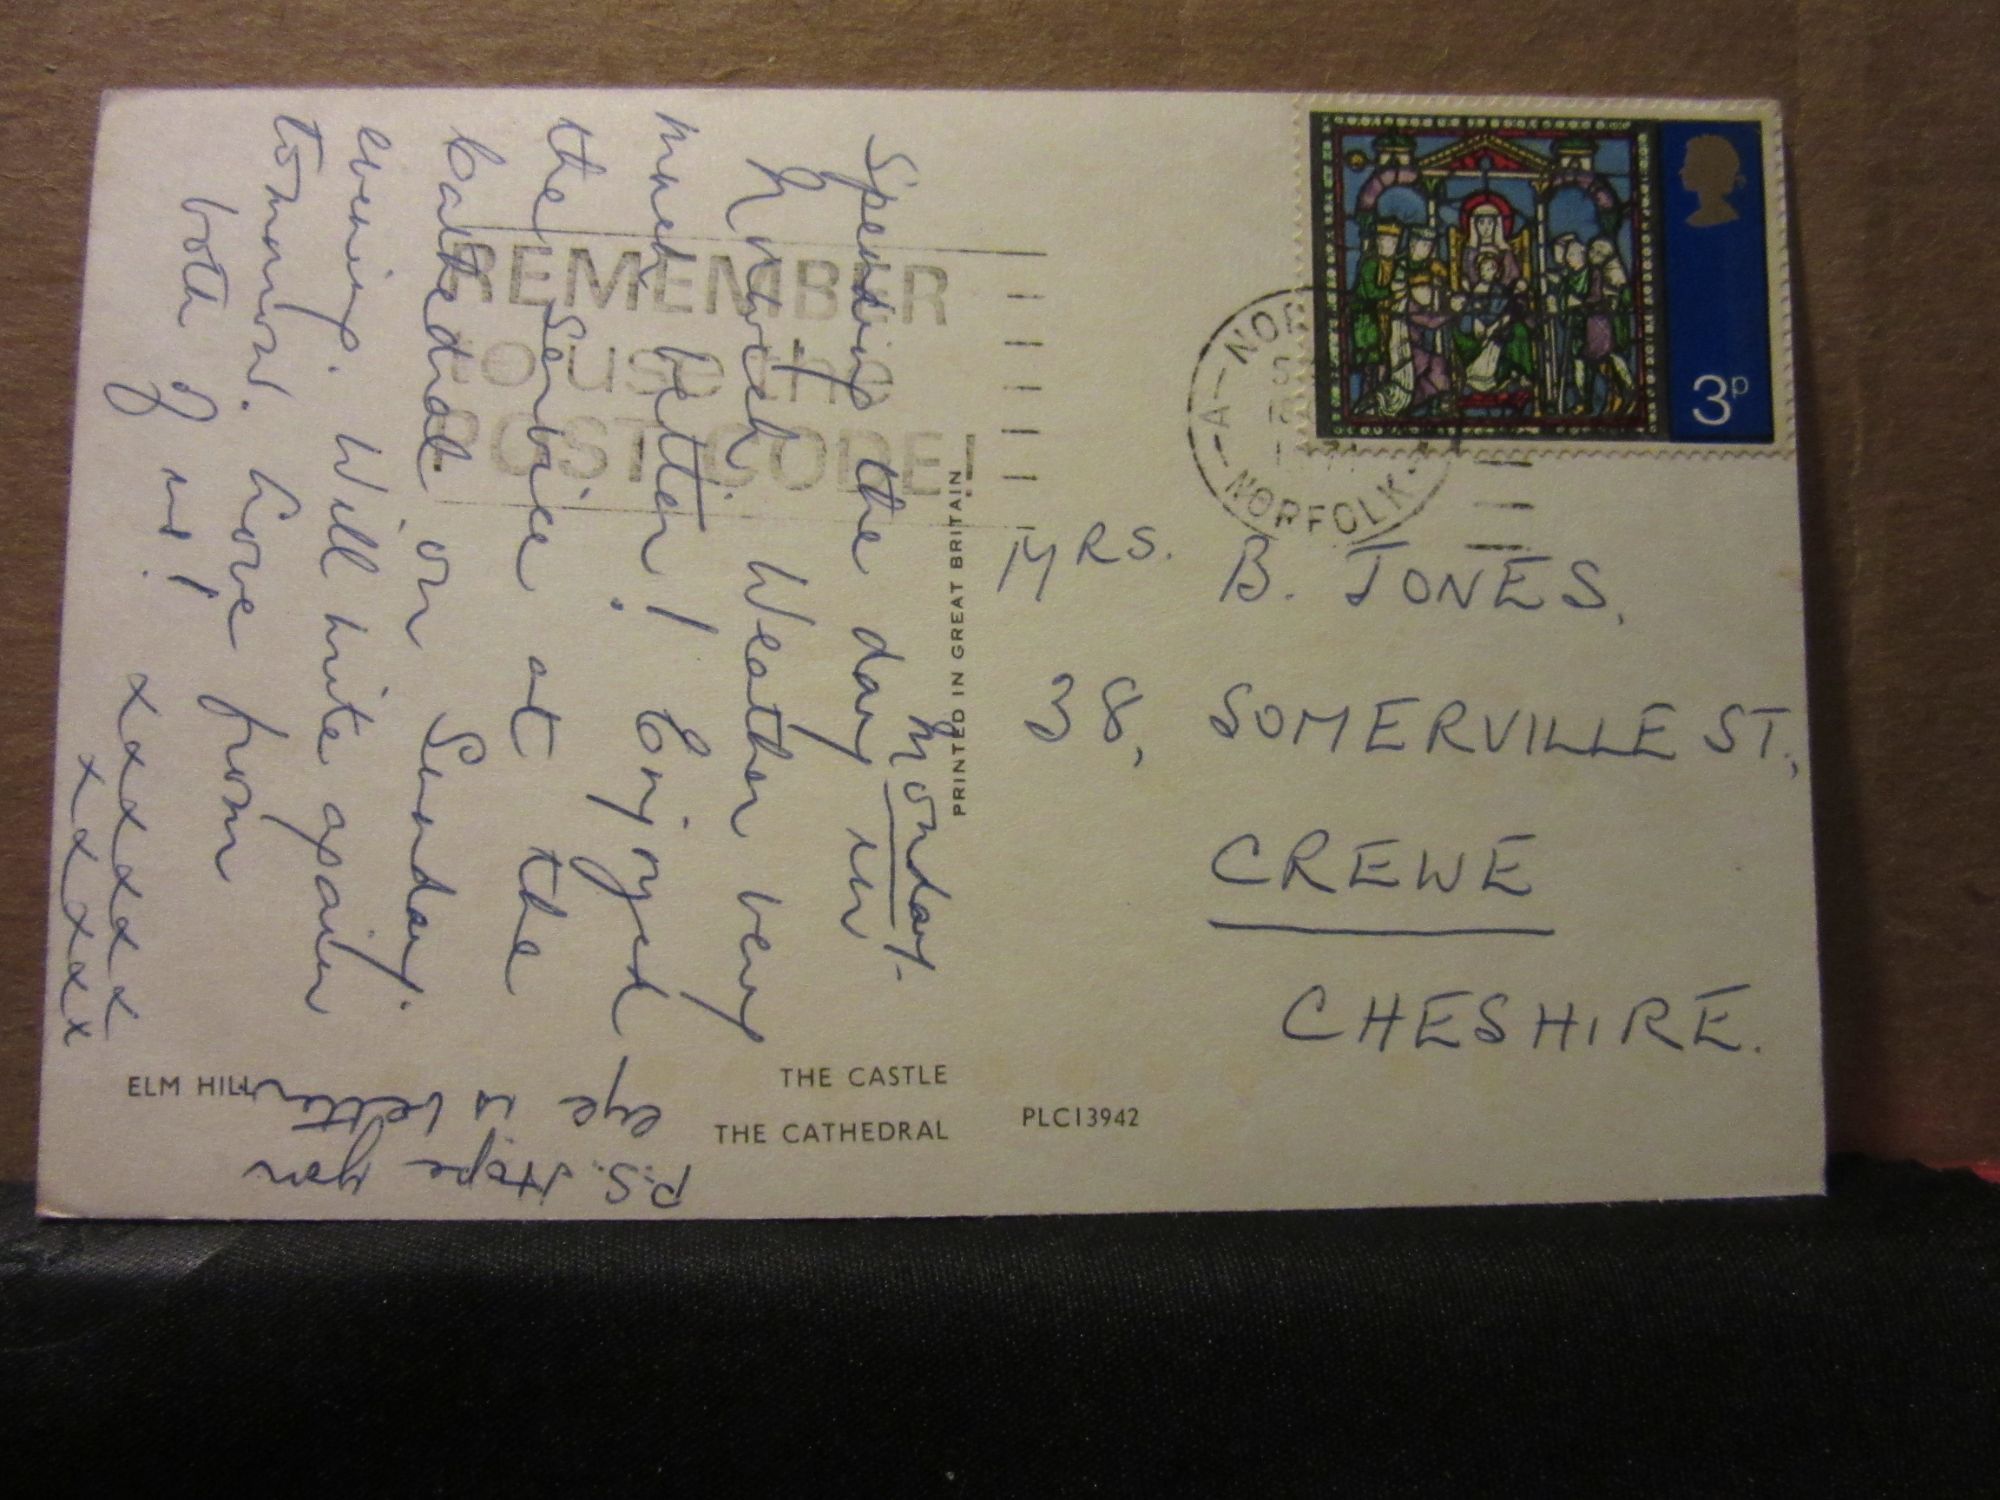 Monday.
Spending the day in
Norwich. Weather very
much better! Enjoyed
the Service at the
Cathedral on Sunday
evening. Will write again
tomorrow. Love from
both of us!
xxxxxxx
xxxxxx
P.S. Hope your
eye is better
REMEMBER
to use the
POST CODE
PRINTED IN GREAT BRITAIN
ELM HILL
THE CASTLE
THE CATHEDRAL
PLC13942
3P
A
NORFOLK
MRS. B. JONES,
38, SOMERVILLE ST.,
CREWE
CHESHIRE.